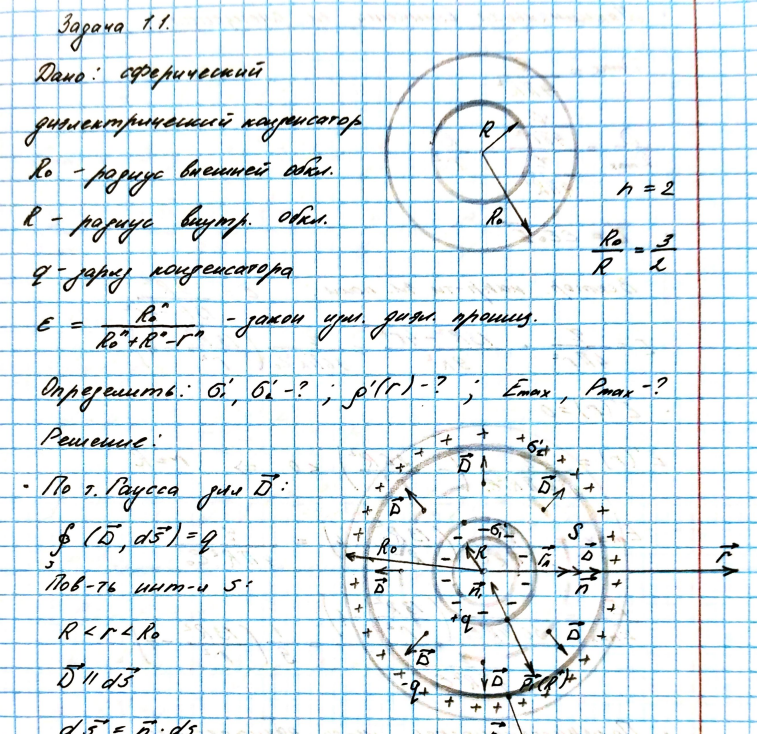 Задача 1.1.
Дано: сферический
диэлектрический конденсатор
R₀ - радиус внешней обкл.
R - радиус внутр. обкл.
q - заряд конденсатора
ε = R₀ⁿ / (R₀ⁿ + Rⁿ - rⁿ) - закон изм. диэл. прониц.
R
R₀
n = 2
R₀/R = 3/2
Определить: σ₁', σ₂' - ? ; ρ'(r) - ? ; Emax, Pmax - ?
Решение:
· По т. Гаусса для D⃗:
∮ (D⃗, dS⃗) = q
S
Пов-ть инт-я S:
R < r < R₀
D⃗ ∥ dS⃗
dS⃗ = n⃗ · dS
σ₂'
D⃗
D⃗
D⃗
-σ₁'
S
R₀
R
D⃗
r⃗
D⃗
n⃗
+q
D⃗
D⃗
D⃗
-q